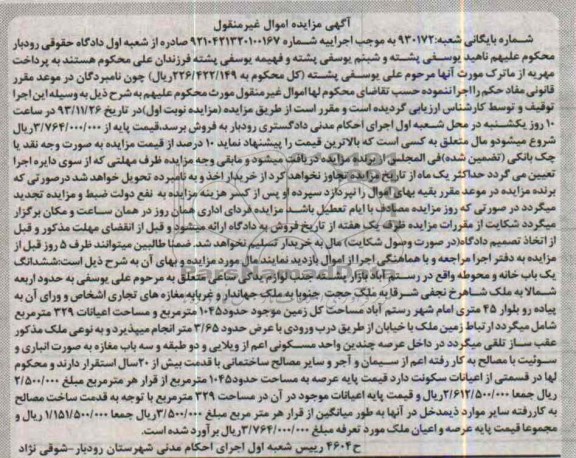 آگهی مزایده اموال غیرمنقول
شماره بایگانی شعبه: ۹۳۰۱۷۲ به موجب اجراییه شماره ۹۲۱۰۴۲۱۳۲۰۱۰۰۱۶۷ صادره از شعبه اول دادگاه حقوقی رودبار
محکوم علیهم ناهید یوسفی پشته و شبنم یوسفی پشته و فهیمه یوسفی پشته فرزندان علی محکوم هستند به پرداخت
مهریه از ماترک مورث آنها مرحوم علی یوسفی پشته (کل محکوم به ۲۲۶/۴۲۲/۱۴۹ریال) چون نامبردگان در موعد مقرر
قانونی مفاد حکم را اجرا ننموده حسب تقاضای محکوم لها اموال غیرمنقول مورث محکوم علیهم به شرح ذیل به وسیله این اجرا
توقیف و توسط کارشناس ارزیابی گردیده است و مقرر است از طریق مزایده (مزایده نوبت اول)در تاریخ ۹۳/۱۱/۲۶ در ساعت
۱۰ روز یکشنبه در محل شعبه اول اجرای احکام مدنی دادگستری رودبار به فروش برسد،قیمت پایه از ۳/۷۶۴/۰۰۰/۰۰۰ریال
شروع میشودو مال متعلق به کسی است که بالاترین قیمت را پیشنهاد نماید ۱۰ درصد از قیمت مزایده به صورت وجه نقد یا
چک بانکی (تضمین شده)فی المجلس از برنده مزایده دریافت میشود و مابقی وجه مزایده ظرف مهلتی که از سوی دایره اجرا
تعیین می گردد حداکثر یک ماه از تاریخ مزایده تجاوز نخواهد کرد از خریدار اخذ و به نامبرده تحویل خواهد شد درصورتی که
برنده مزایده در موعد مقرر بقیه بهای اموال را نپردازد سپرده او پس از کسر هزینه مزایده به نفع دولت ضبط و مزایده تجدید
میگردد در صورتی که روز مزایده مصادف با ایام تعطیل باشد مزایده فردای اداری همان روز در همان ساعت و مکان برگزار
میگردد شکایت از مقررات مزایده ظرف یک هفته از تاریخ فروش به دادگاه ارائه میشود و قبل از انقضای مهلت مذکور و قبل
از اتخاذ تصمیم دادگاه(در صورت وصول شکایت) مال به خریدار تسلیم نخواهد شد. ضمنا طالبین میتوانند ظرف ۵ روز قبل از
مزایده به دفتر اجرا مراجعه و با هماهنگی اجرا از اموال بازدید نمایند.مال مورد مزایده و بهای آن به شرح ذیل است:ششدانگ
یک باب خانه و محوطه واقع در رستم آباد بازار پشته جنب لوازم یدکی متعلق به مرحوم علی یوسفی به حدود اربعه
شمالا به ملک شاهرخ نجفی شرقا به ملک صحت جنوبا به ملک جهاندار و غربا به مغازه های تجاری اشخاص و ورای آن به
پیاده رو بلوار ۴۵ متری امام شهر رستم آباد مساحت کل زمین موجود حدود۱۰۴۵ مترمربع و مساحت اعیانات ۳۲۹ مترمربع
شامل میگردد ارتباط زمین ملک با خیابان از طریق درب ورودی با عرض حدود ۳/۶۵ متر انجام میپذیرد و به نوعی ملک مذکور
عقب ساز تلقی میگردد در داخل عرصه چندین واحد مسکونی اعم از ویلایی و دو طبقه و سه باب مغازه به صورت انباری و
سوئیت با مصالح به کار رفته اعم از سیمان و آجر و سایر مصالح ساختمانی با قدمت بیش از ۲۰سال استقرار دارند و محکوم
لها در قسمتی از اعیانات سکونت دارد قیمت پایه عرصه به مساحت حدود۱۰۴۵ مترمربع از قرار هر مترمربع مبلغ ۲/۵۰۰/۰۰۰
ریال جمعا ۲/۶۱۲/۵۰۰/۰۰۰ریال و قیمت پایه اعیانات موجود در آن در مساحت ۳۲۹ مترمربع با توجه به قدمت ساخت مصالح
به کاررفته سایر موارد ذیمدخل در آنها به طور میانگین از قرار هر متر مربع مبلغ ۳/۵۰۰/۰۰۰ریال جمعا ۱/۱۵۱/۵۰۰/۰۰۰ ریال و
مجموعا قیمت پایه عرصه و اعیان ملک مورد تعرفه مبلغ ۳/۷۶۴/۰۰۰/۰۰۰ریال برآورد شده است.
ح۴۶۰۴ رییس شعبه اول اجرای احکام مدنی شهرستان رودبار-شوقی نژاد